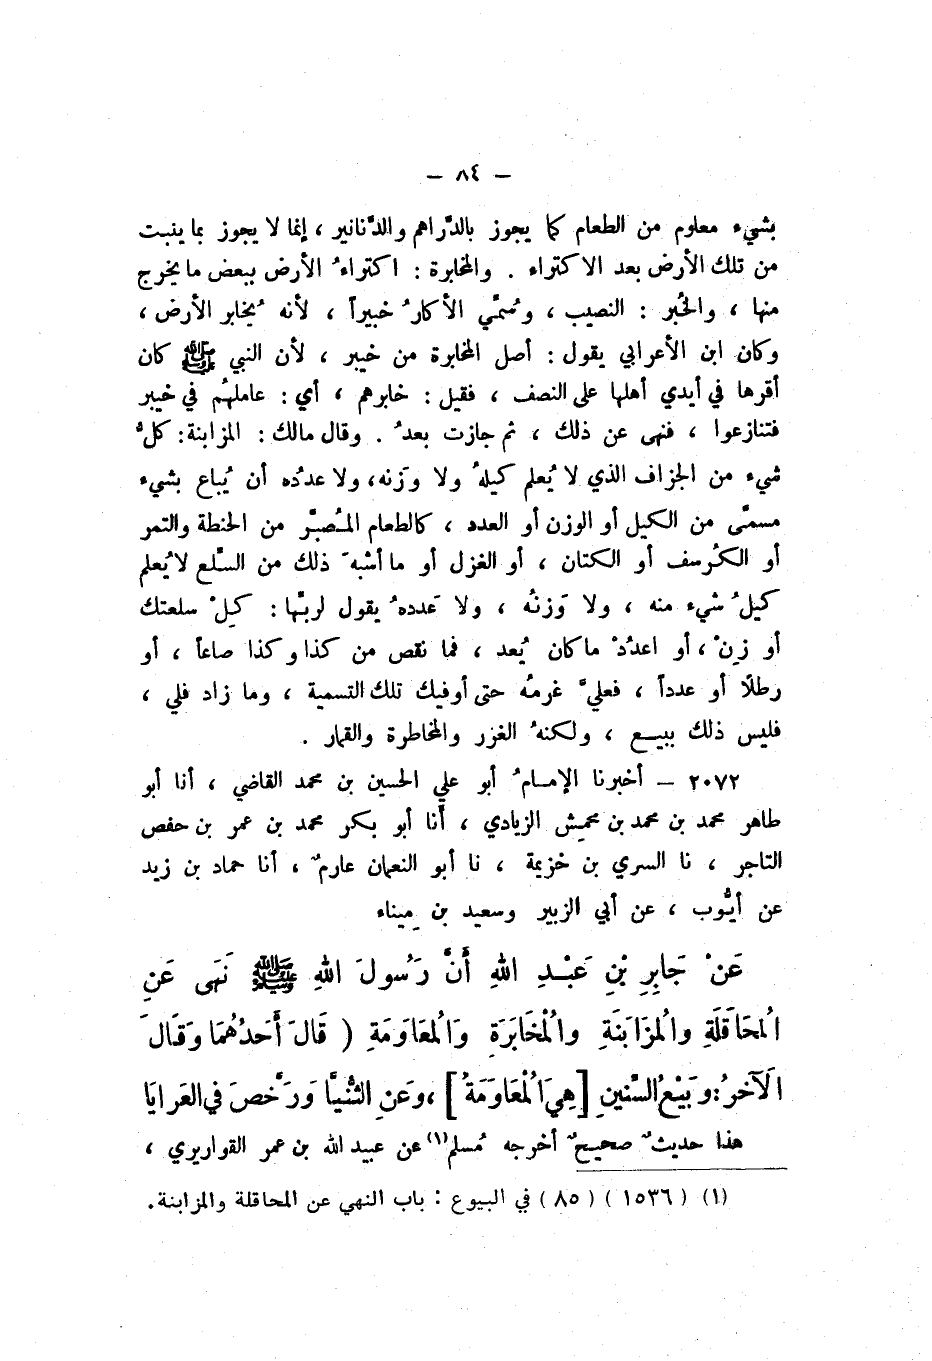 – ٨٤ –
بشيء معلوم من الطعام كما يجوز بالدَّراهم والدَّنانير ، إنما لا يجوز بما ينبت
من تلك الأرض بعد الاكتراء . والمخابرة : اكتراءُ الأرض ببعض ما يخرج
منها ، والخُبر : النصيب ، وسُمِّي الأكارُ خبيراً ، لأنه يُخابر الأرض ،
وكان ابن الأعرابي يقول : أصل المخابرة من خيبر ، لأن النبي ﷺ كان
أقرها في أيدي أهلها على النصف ، فقيل : خابرهم ، أي : عاملهُم في خيبر
فتنازعوا ، فنهى عن ذلك ، ثم جازت بعدُ . وقال مالك : المزابنة : كلُّ
شيء من الجزاف الذي لا يُعلم كيلهُ ولا وَزنه، ولا عددُه أن يُباع بشيء
مسمَّى من الكيل أو الوزن أو العدد ، كالطعام المُصبَّر من الحنطة والتمر
أو الكُرسف أو الكتان ، أو الغزل أو ما أشبهَ ذلك من السِّلع لا يُعلم
كيلُ شيء منه ، ولا وَزنُه ، ولا عَددهُ يقول لربِّها : كِلْ سلعتك
أو زِنْ ، أو اعدُدْ ما كان يُعد ، فما نقص من كذا وكذا صاعاً ، أو
رطلًا أو عدداً ، فعليَّ غرمُه حتى أوفيك تلك التسمية ، وما زاد فلي ،
فليس ذلك ببيـــع ، ولكنهُ الغرر والمخاطرة والقمار .
٢٠٧٢ – أخبرنا الإمــامُ أبو علي الحسين بن محمد القاضي ، أنا أبو
طاهر محمد بن محمد بن محمِش الزيادي ، أنا أبو بكر محمد بن عمر بن حفص
التاجر ، نا السري بن خزيمة ، نا أبو النعمان عارمٌ ، أنا حماد بن زيد
عن أيُّوب ، عن أبي الزبير وسعيد بن مِيناء
عَنْ جَابِرِ بْنِ عَبْــدِ اللهِ أَنَّ رَسُولَ اللهِ ﷺ نَهَى عَنِ
المُحَاقَلَةِ والمُزَابَنَةِ والمُخَابَرَةِ وَالمُعَاوَمَةِ ( قَالَ أَحَدُهُمَا وَقَالَ
الآخرُ: وَبَيْعُ السِّنينِ [هِيَ المُعَاوَمَةُ] ، وَعَنِ الثُّنْيَا وَرَخَّصَ في العَرايَا
هذا حديثٌ صحيحٌ أخرجه مُسلم(١) عن عبيد الله بن عمر القواريري ،
(١) ( ١٥٣٦ ) ( ٨٥ ) في البيوع : باب النهي عن المحاقلة والمزابنة .